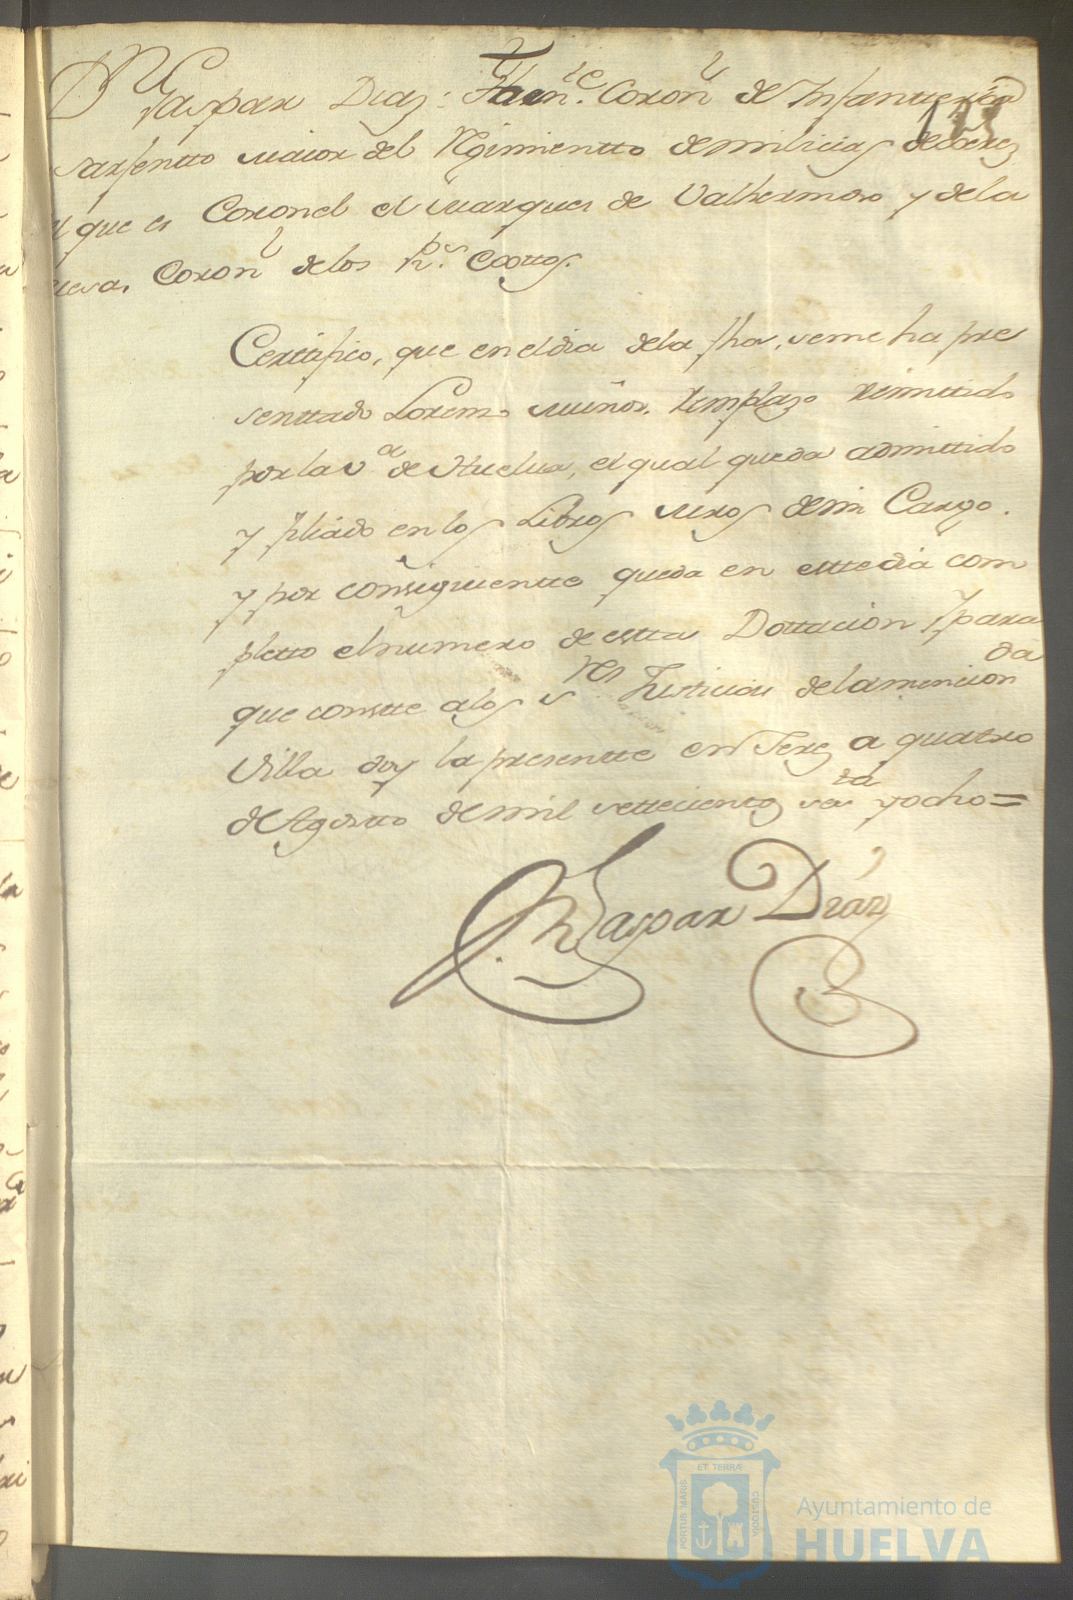 Dn Gaspar Diaz: Thente. Coronl de Infanteria
sarjentto maior del Rgimientto de milicias de Xerez
el que es Coronel el Marques de Valhermoso y de la
Coronl de los Rs. Exttos.
Certifico, que en el dia de la fha, se me ha pre
senttado Lorenzo Muños. Remplazo Remittido
por la Va de Huelva, el qual queda admittido
y filiado en los Libros mros de mi Cargo.
y por consiguientte queda en estte dia com
pletto el numero de estta Dottacion, Ypara
que constte a los Sres Justicias de la menciona
da
Villa doy la presentte en Jerez a quatro
de Agostto de mil settecientos seta y ocho =
Dn Gaspar Diaz
133
PORTUS MARIS
ET TERRÆ
CUSTODIA
Ayuntamiento de
HUELVA